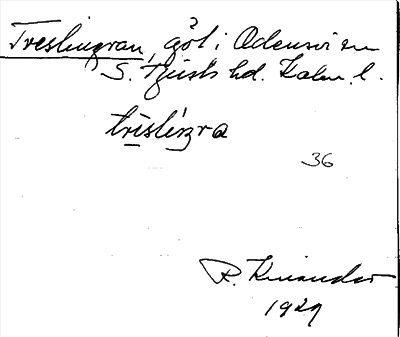 Treslingran, göl i Odensvi sn
S. Tjusts hd. Kalm. l.
trislìŋra
36
R. Kinander
1929